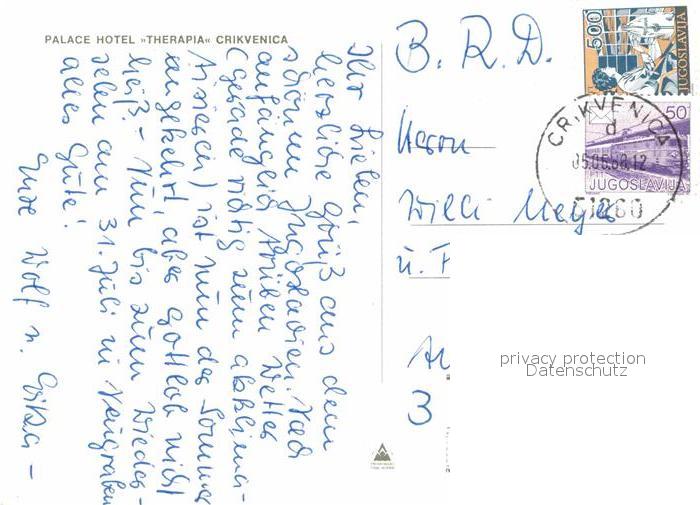 PALACE HOTEL »THERAPIA« CRIKVENICA
Ihr Lieben,
herzliche Grüß aus dem
schönen Jugoslavien. Nach
anfänglich trüben Wetter
(gerade richtig zum akklima-
tisieren) ist nun der Sommer
eingekehrt, aber Gottlob nicht
heiß. - Nun bis zum Wieder-
sehn am 31. Juli in Neugraben
alles Gute!
Eure Wolf u.
B. R. D.
Herrn
Willi Meyer
u. F
3
500
JUGOSLAVIJA
50
JUGOSLAVIJA
CRIKVENICA
d
51260
privacy protection
Datenschutz